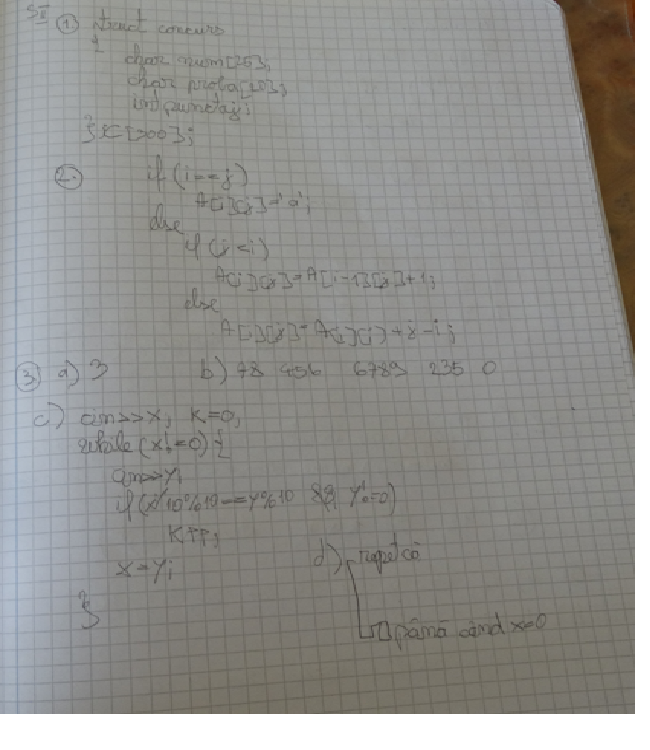 SII ① struct concurs
{
char num[25];
char proba[20];
int punctaj;
}x[200];
② if (i==j)
A[i][j]='a';
else
if (j<i)
A[i][j]=A[i-1][j]+1;
else
A[i][j]=A[i][i]+j-i;
③ a) 3 b) 78 456 6789 235 0
c) cin>>x; K=0;
while (x!=0) {
cin>>y;
if(x/10%10==y%10 && y!=0)
K++;
x=y;
}
d) repetă
până când x=0